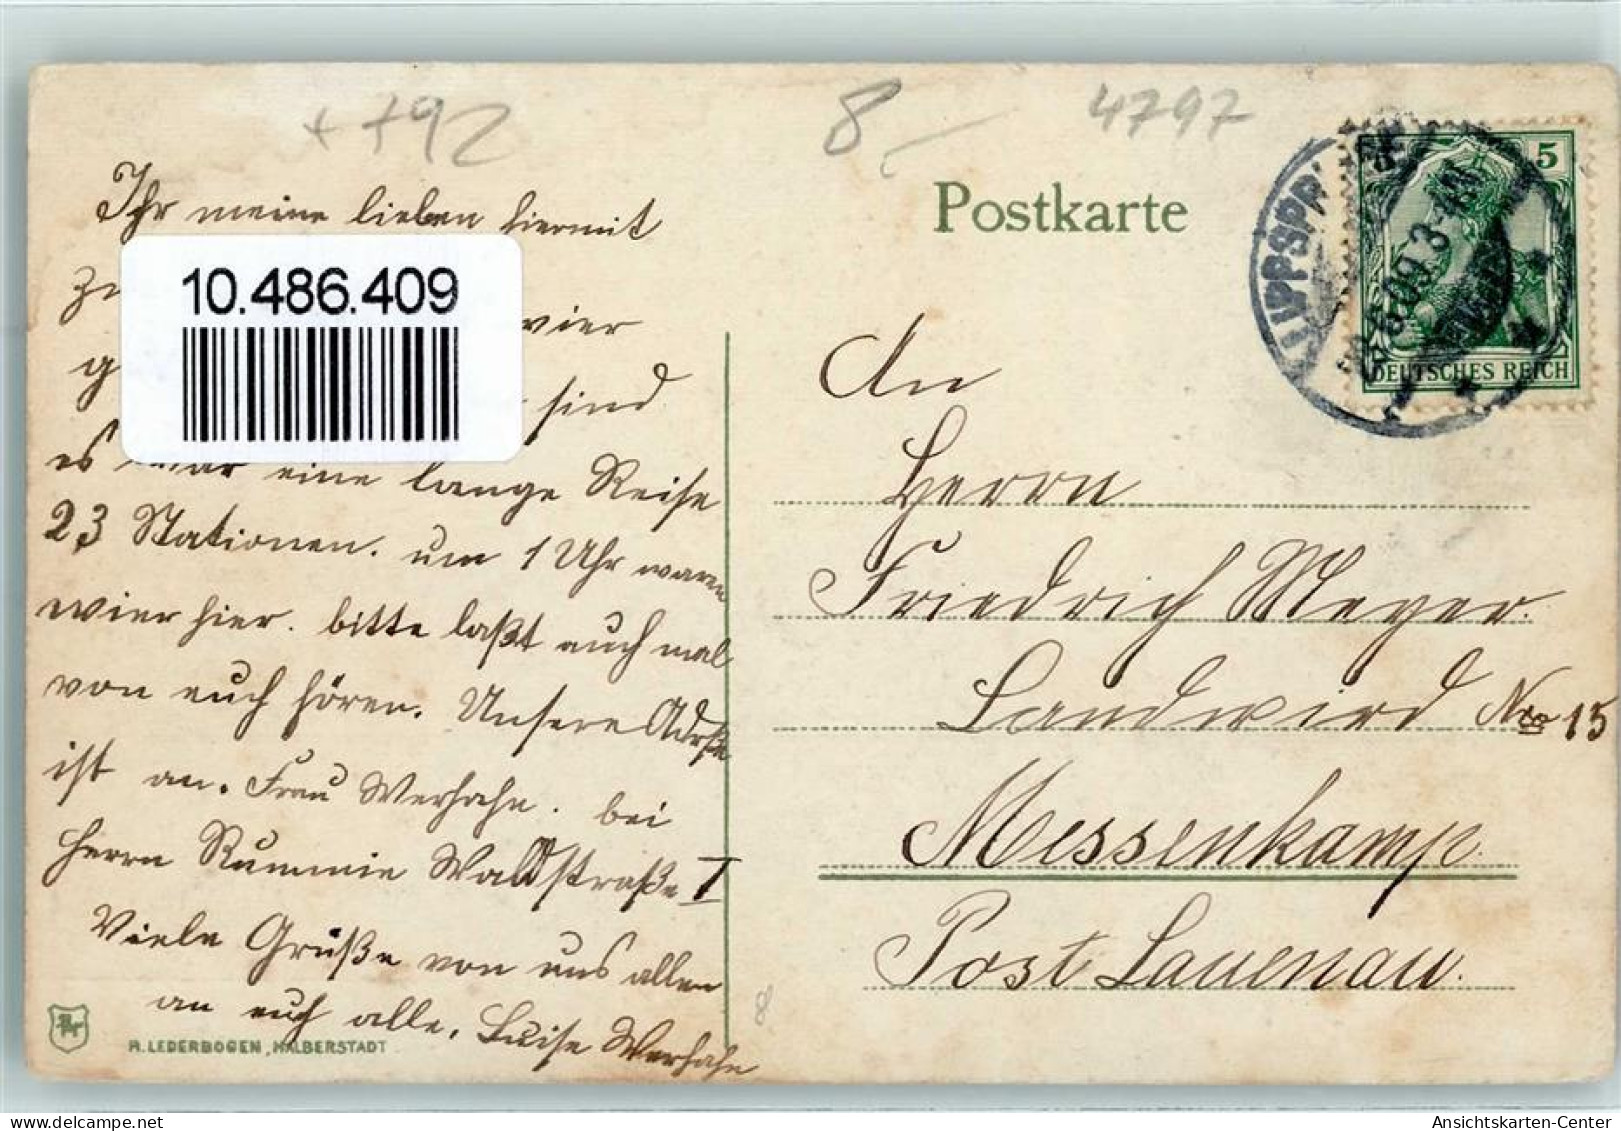 ++92
8
4797
Postkarte
LIPPSPR
5
09.3
DEUTSCHES REICH
Ihr meine lieben hiermit
10.486.409
wier
sind
es war eine lange Reise
23 Stationen. um 1 Uhr waren
wier hier. bitte laßt auch mal
von euch hören. Unsere Adrße
ist an. Frau Werhahn. bei
Herrn Rummie Waldstraße I
Viele Grüße von uns allen
an euch alle. Luise Werhahn
An
Herrn
Friedrich Meyer.
Landwird Nro 15
Messenkamp
Post Lauenau.
8
R. LEDERBOGEN, HALBERSTADT
Ansichtskarten-Center